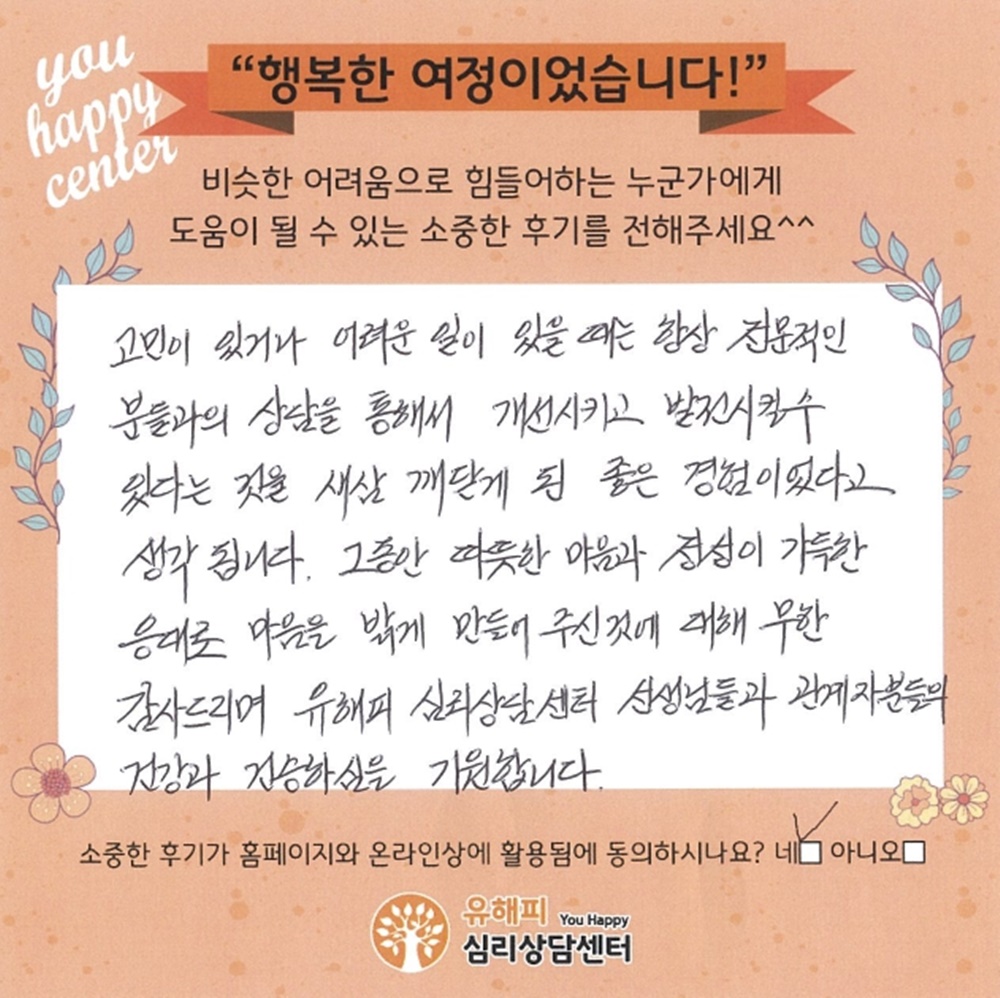 you
happy
center
“행복한 여정이었습니다!”
비슷한 어려움으로 힘들어하는 누군가에게
도움이 될 수 있는 소중한 후기를 전해주세요^^
고민이 있거나 어려운 일이 있을 때는 항상 전문적인
분들과의 상담을 통해서 개선시키고 발전시킬수
있다는 것을 새삼 깨닫게 된 좋은 경험이었다고
생각 됩니다. 그동안 따뜻한 마음과 정성이 가득한
응대로 마음을 밝게 만들어 주신것에 대해 무한
감사드리며 유해피 심리상담센터 선생님들과 관계자분들의
건강과 건승하심을 기원합니다.
소중한 후기가 홈페이지와 온라인상에 활용됨에 동의하시나요? 네☑ 아니오□
유해피 You Happy
심리상담센터